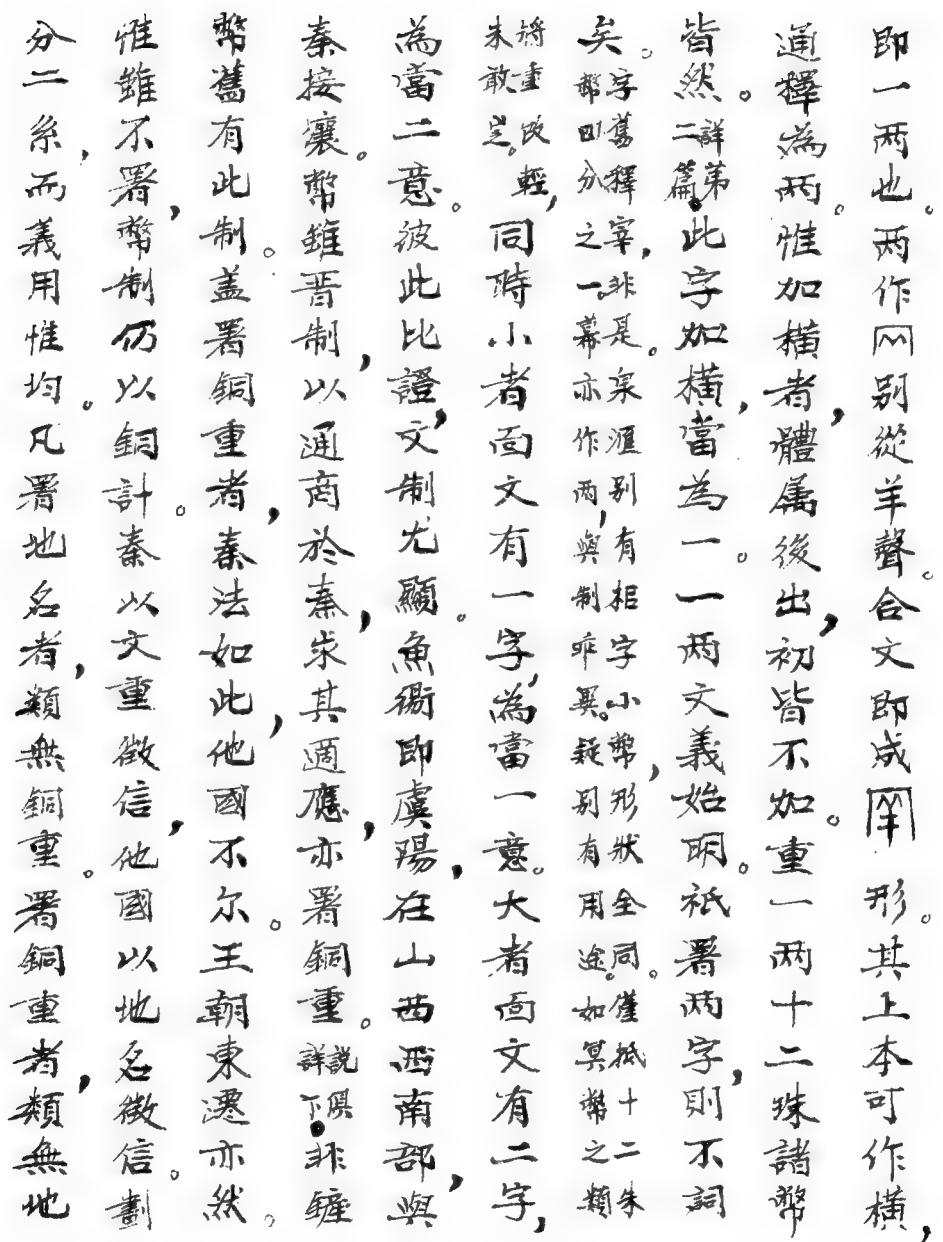 即一两也。两作𠕒别從羊聲。合文即成 形。其上本可作橫，
通釋為两。惟加橫者，體屬後出，初皆不加。重一两十二珠諸幣
皆然。詳第二篇。此字加橫，當為一。一两文義始明。祇署两字，則不詞
矣。字舊釋宰，非是。泉滙别有相字小幣，形狀全同。僅抵十二朱
幣四分之一。幕亦作两，與制乖異。疑别有用途。如冥幣之類
將重改輕，未敢岂。同時小者面文有一字，為當一意。大者面文有二字，
為當二意。彼此比證，文制尤顯。魚衖即虞陽，在山西西南部，與
秦接瀼。幣雖晋制，以通商於秦，求其適應，亦署銅重。説俱詳下。非鏟
幣舊有此制。盖署銅重者，秦法如此，他國不尔。王朝東遷亦然。
惟雖不署，幣制仍以銅計。秦以文重徵信，他國以地名徵信。劃
分二系，而義用惟均。凡署地名者，類無銅重。署銅重者，類無地